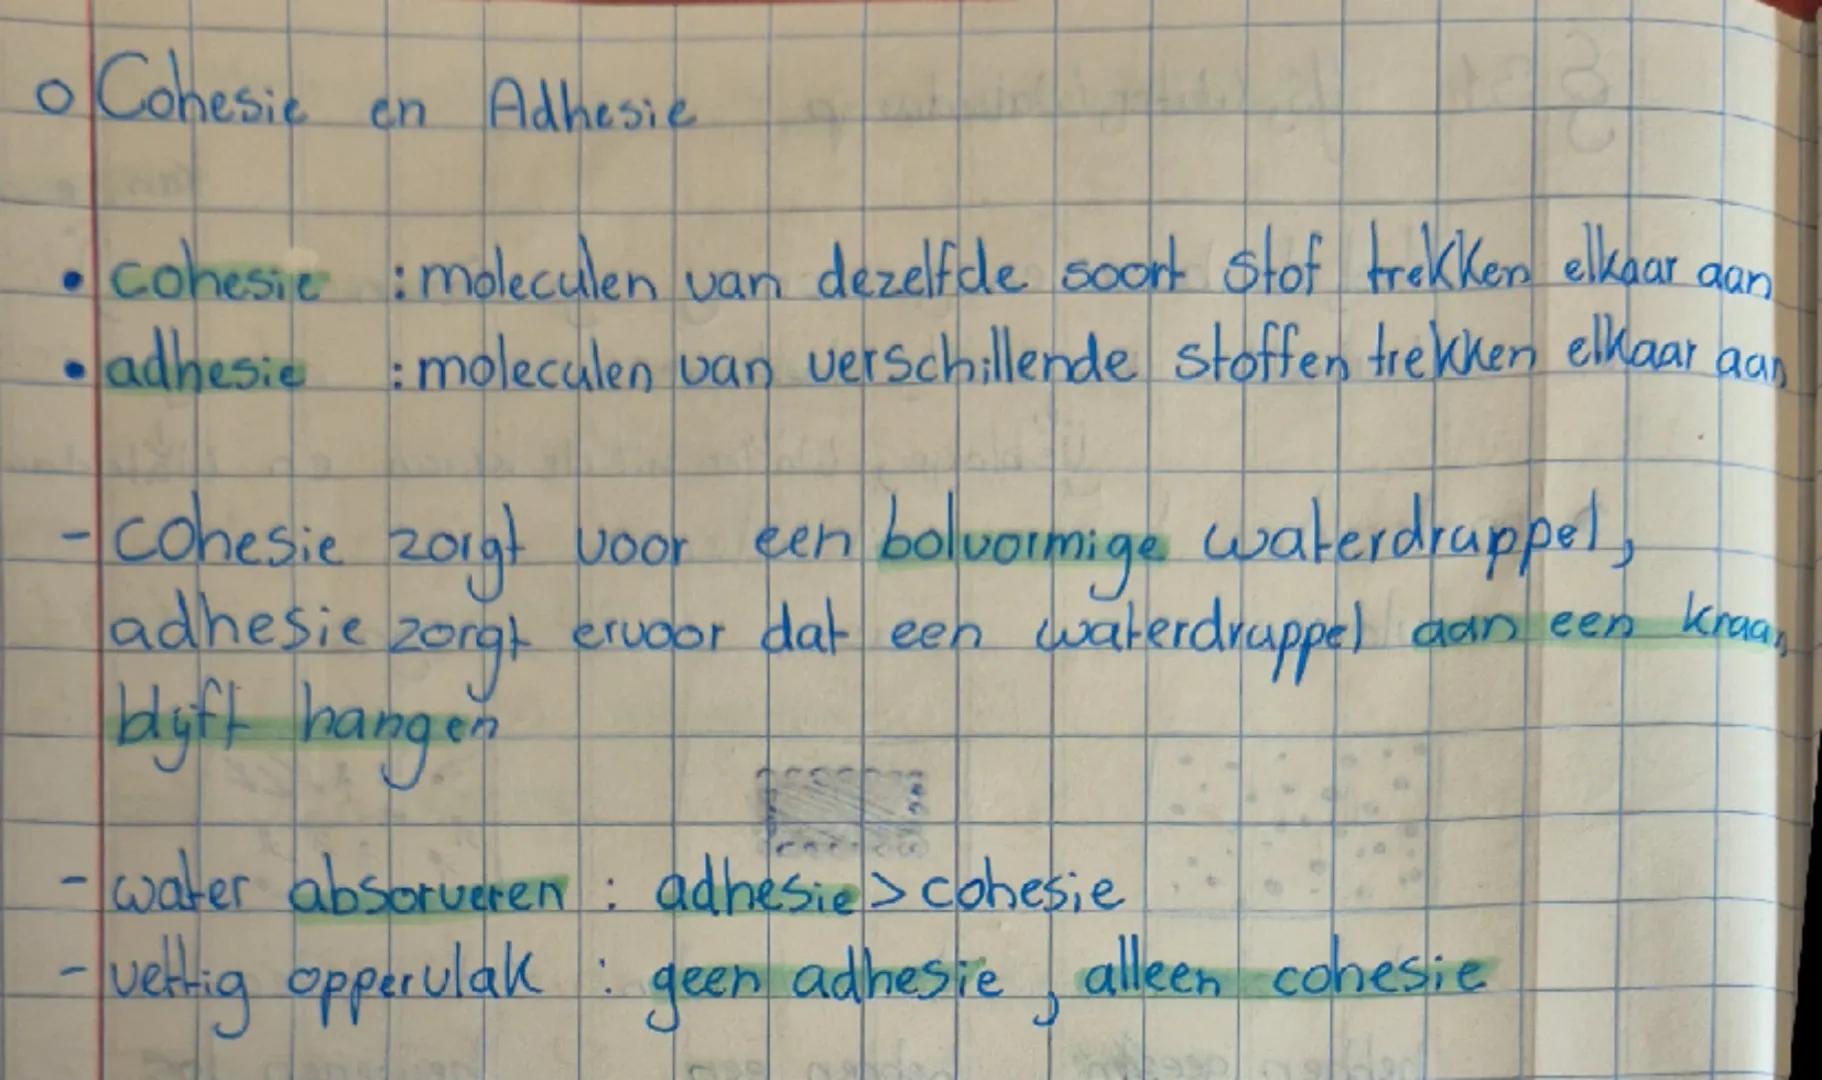 o Cohesie en Adhesie
• cohesie : moleculen van dezelfde soort stof trekken elkaar aan
• adhesie : moleculen van verschillende stoffen trekken elkaar aan
- cohesie zorgt voor een bolvormige waterdruppel,
adhesie zorgt ervoor dat een waterdruppel aan een kraan
blijft hangen
- water absorveren : adhesie > cohesie
- vettig oppervlak : geen adhesie, alleen cohesie